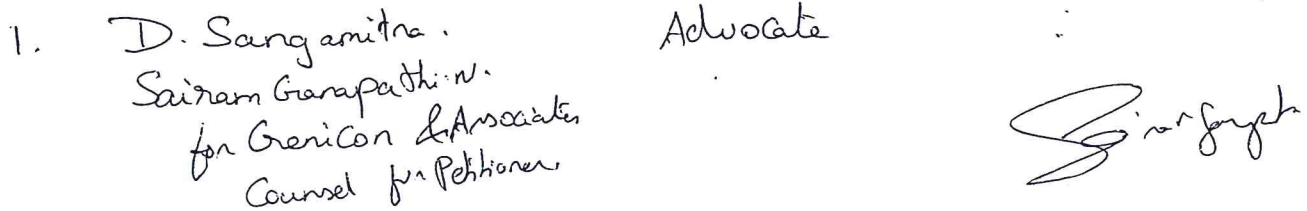 1. D. Sangamitra. Advocate
Sairam Ganapathi.N.
for Genicon & Associates
Counsel for Petitioner.